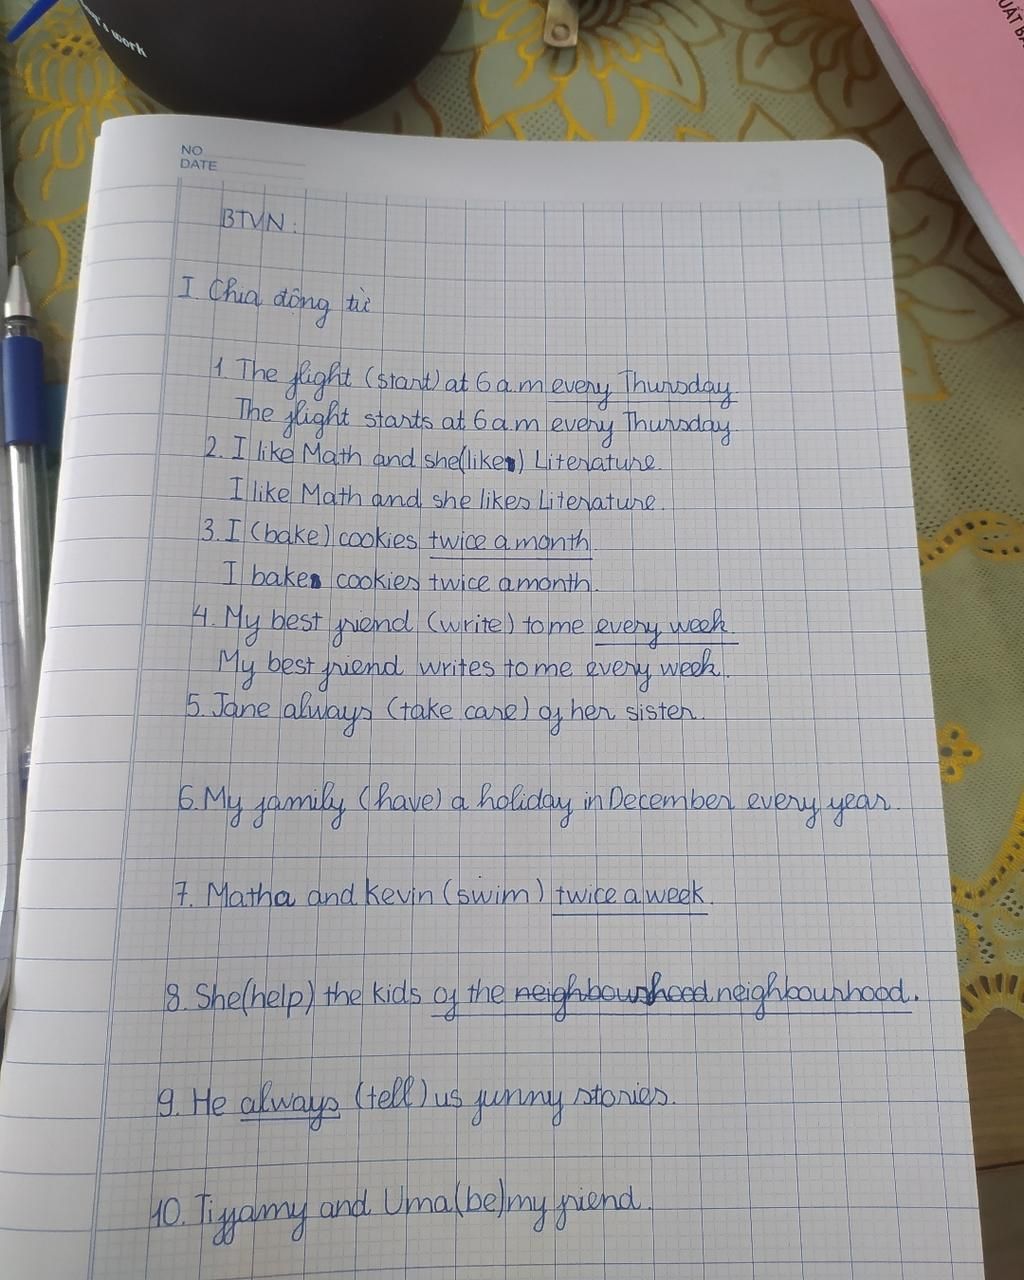 's work
UẤT B
NO
DATE
BTVN:
I. Chia động từ
1. The flight (start) at 6 a.m every Thursday
The flight starts at 6 a.m every Thursday
2. I like Math and she (like) Literature.
I like Math and she likes Literature.
3. I (bake) cookies twice a month
I bake cookies twice a month.
4. My best friend (write) to me every week
My best friend writes to me every week.
5. Jane always (take care) of her sister.
6. My family (have) a holiday in December every year.
7. Matha and Kevin (swim) twice a week.
8. She (help) the kids of the neighbourhood neighbourhood.
9. He always (tell) us funny stories.
10. Tiffamy and Uma (be) my friend.